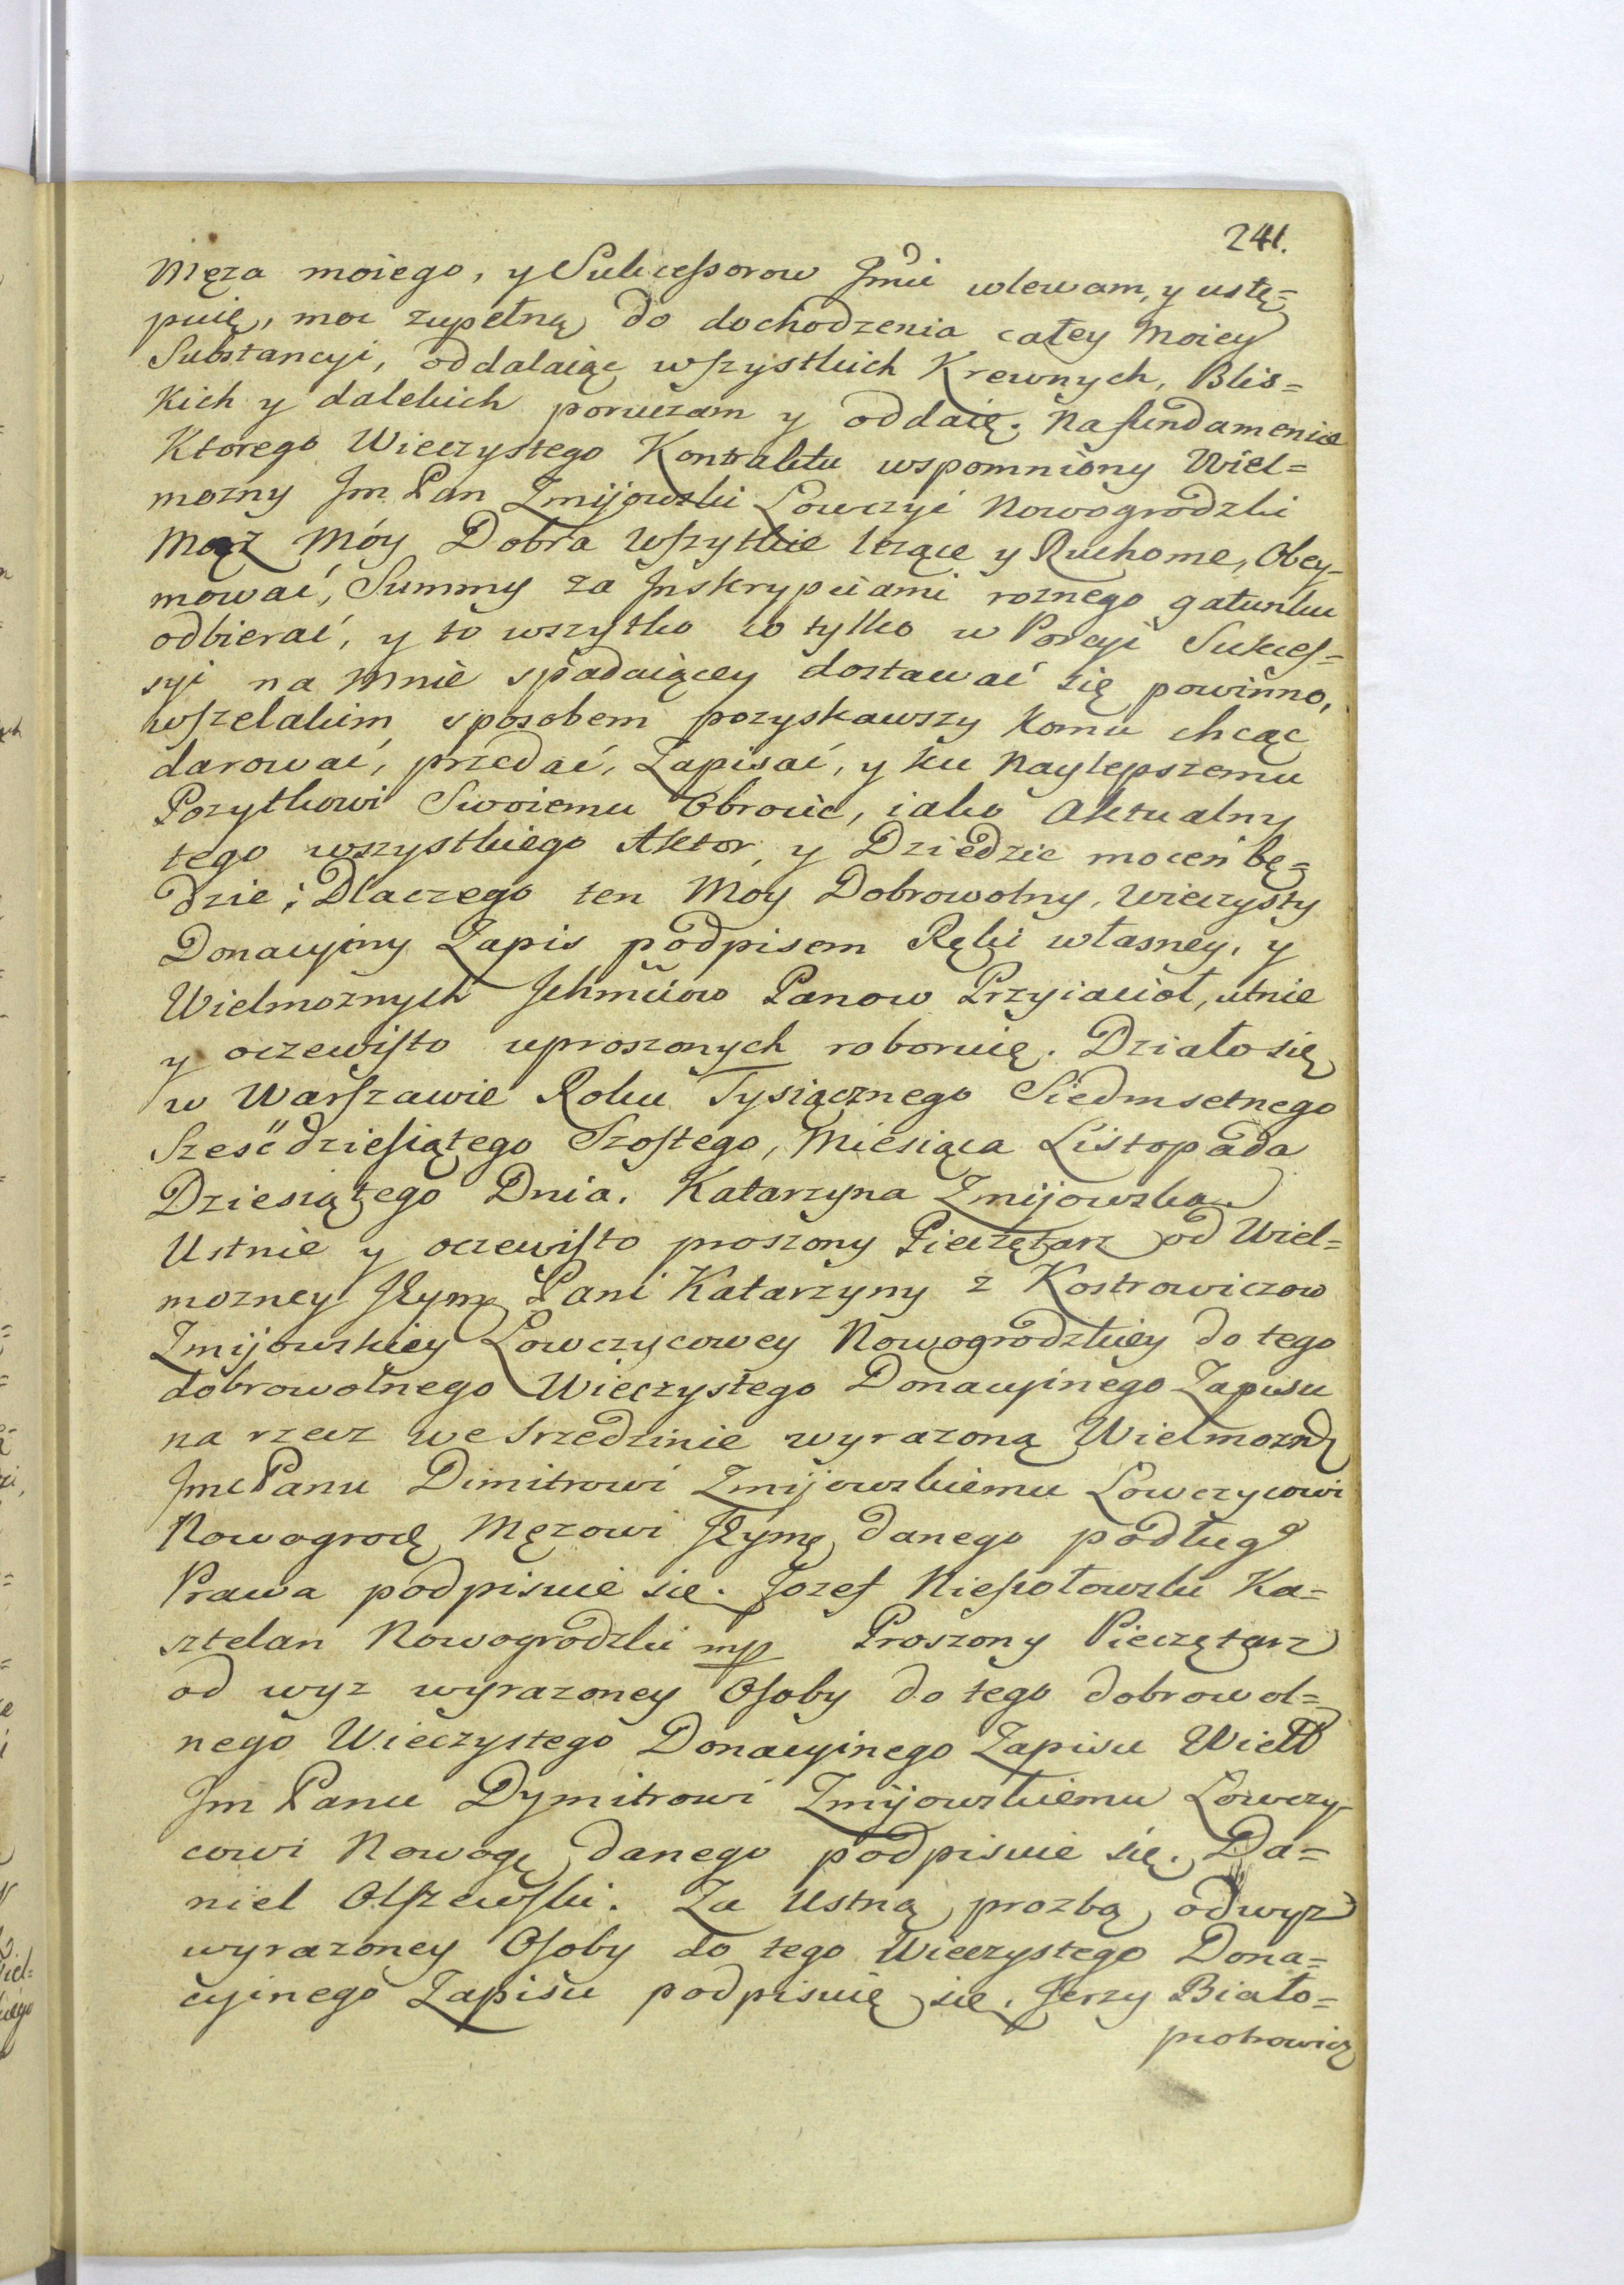 241.
Męza moiego, y Sukcessorow Jmci wlewam, y ustę=
puię, moc zupełną do dochodzenia całey Moiey
Substancyi, oddalaiąc wszystkich Krewnych, Blis=
kich y dalekich poruczam y oddaię. Na fundamencie
Ktorego Wieczystego Kontraktu wspomniony Wiel=
mozny Jm Pan Zmijowski Łowczyi Nowogrodzki
Mąz Móy Dobra Wszytkie lezące y Ruchome, Obey=
mować, Summy za Inskrypciami roznego gatunku
odbierać, y to wszytko co tylko w Porcyi Sukces=
syi na Mnie spadaiącey dostawać się powinno,
wszelakim sposobem pozyskawszy Komu chcąc
darować, przedać, Zapisać, y ku Naylepszemu
Pozytkowi Swoiemu Obrocic, iako Aktualny
tego wszystkiego Aktor, y Dziedzic mocen bę=
dzie; Dlaczego ten Moy Dobrowolny, Wieczysty
Donacyiny Zapis podpisem Ręki własney, y
Wielmoznych Ichmciow Panow Przyiacioł, utnie
y oczewisto uproszonych roboruię. Działo się
w Warszawie Roku Tysiącznego Siedmsetnego
Sześćdziesiątego Szostego, Miesiąca Listopada
Dziesiątego Dnia. Katarzyna Zmijowska
Ustnie y oczewisto proszony Pieczętarz od Wiel=
mozney JEymę Pani Katarzyny z Kostrowiczow
Zmijowskiey Łowczycowey Nowogrodzkiey do tego
dobrowolnego Wieczystego Donacyinego Zapisu
na rzecz we srzedzinie wyrazoną Wielmozn
Jmc Panu Dimitrowi Zmijowskiemu Łowczycowi
Nowogrodę Męzowi JEymę danego podług
Prawa podpisuie się. Jozef Niesiołowski Ka=
sztelan Nowogrodzki mp Proszony Pieczętarz
od wyz wyrazoney Osoby do tego dobrowol=
nego Wieczystego Donacyinego Zapisu Wiel
Jm Panu Dymitrowi Zmijowskiemu Łowczy
cowi Nowogę danego podpisuie się. Da=
niel Olszewski. Za Ustną prozbą od wyz
wyrazoney Osoby do tego Wieczystego Dona=
cyinego Zapisu podpisuię się. Jerzy Biało=
piotrowicz